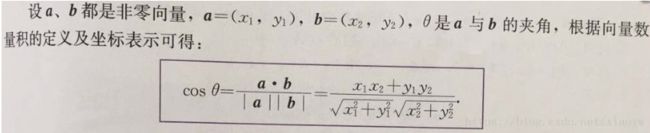 设a、b都是非零向量,a=(x₁, y₁),b=(x₂, y₂),θ是a与b的夹角,根据向量数
量积的定义及坐标表示可得:
cos θ=\frac{a·b}{|a||b|}=\frac{x₁x₂+y₁y₂}{\sqrt{x₁²+y₁²}\sqrt{x₂²+y₂²}}.